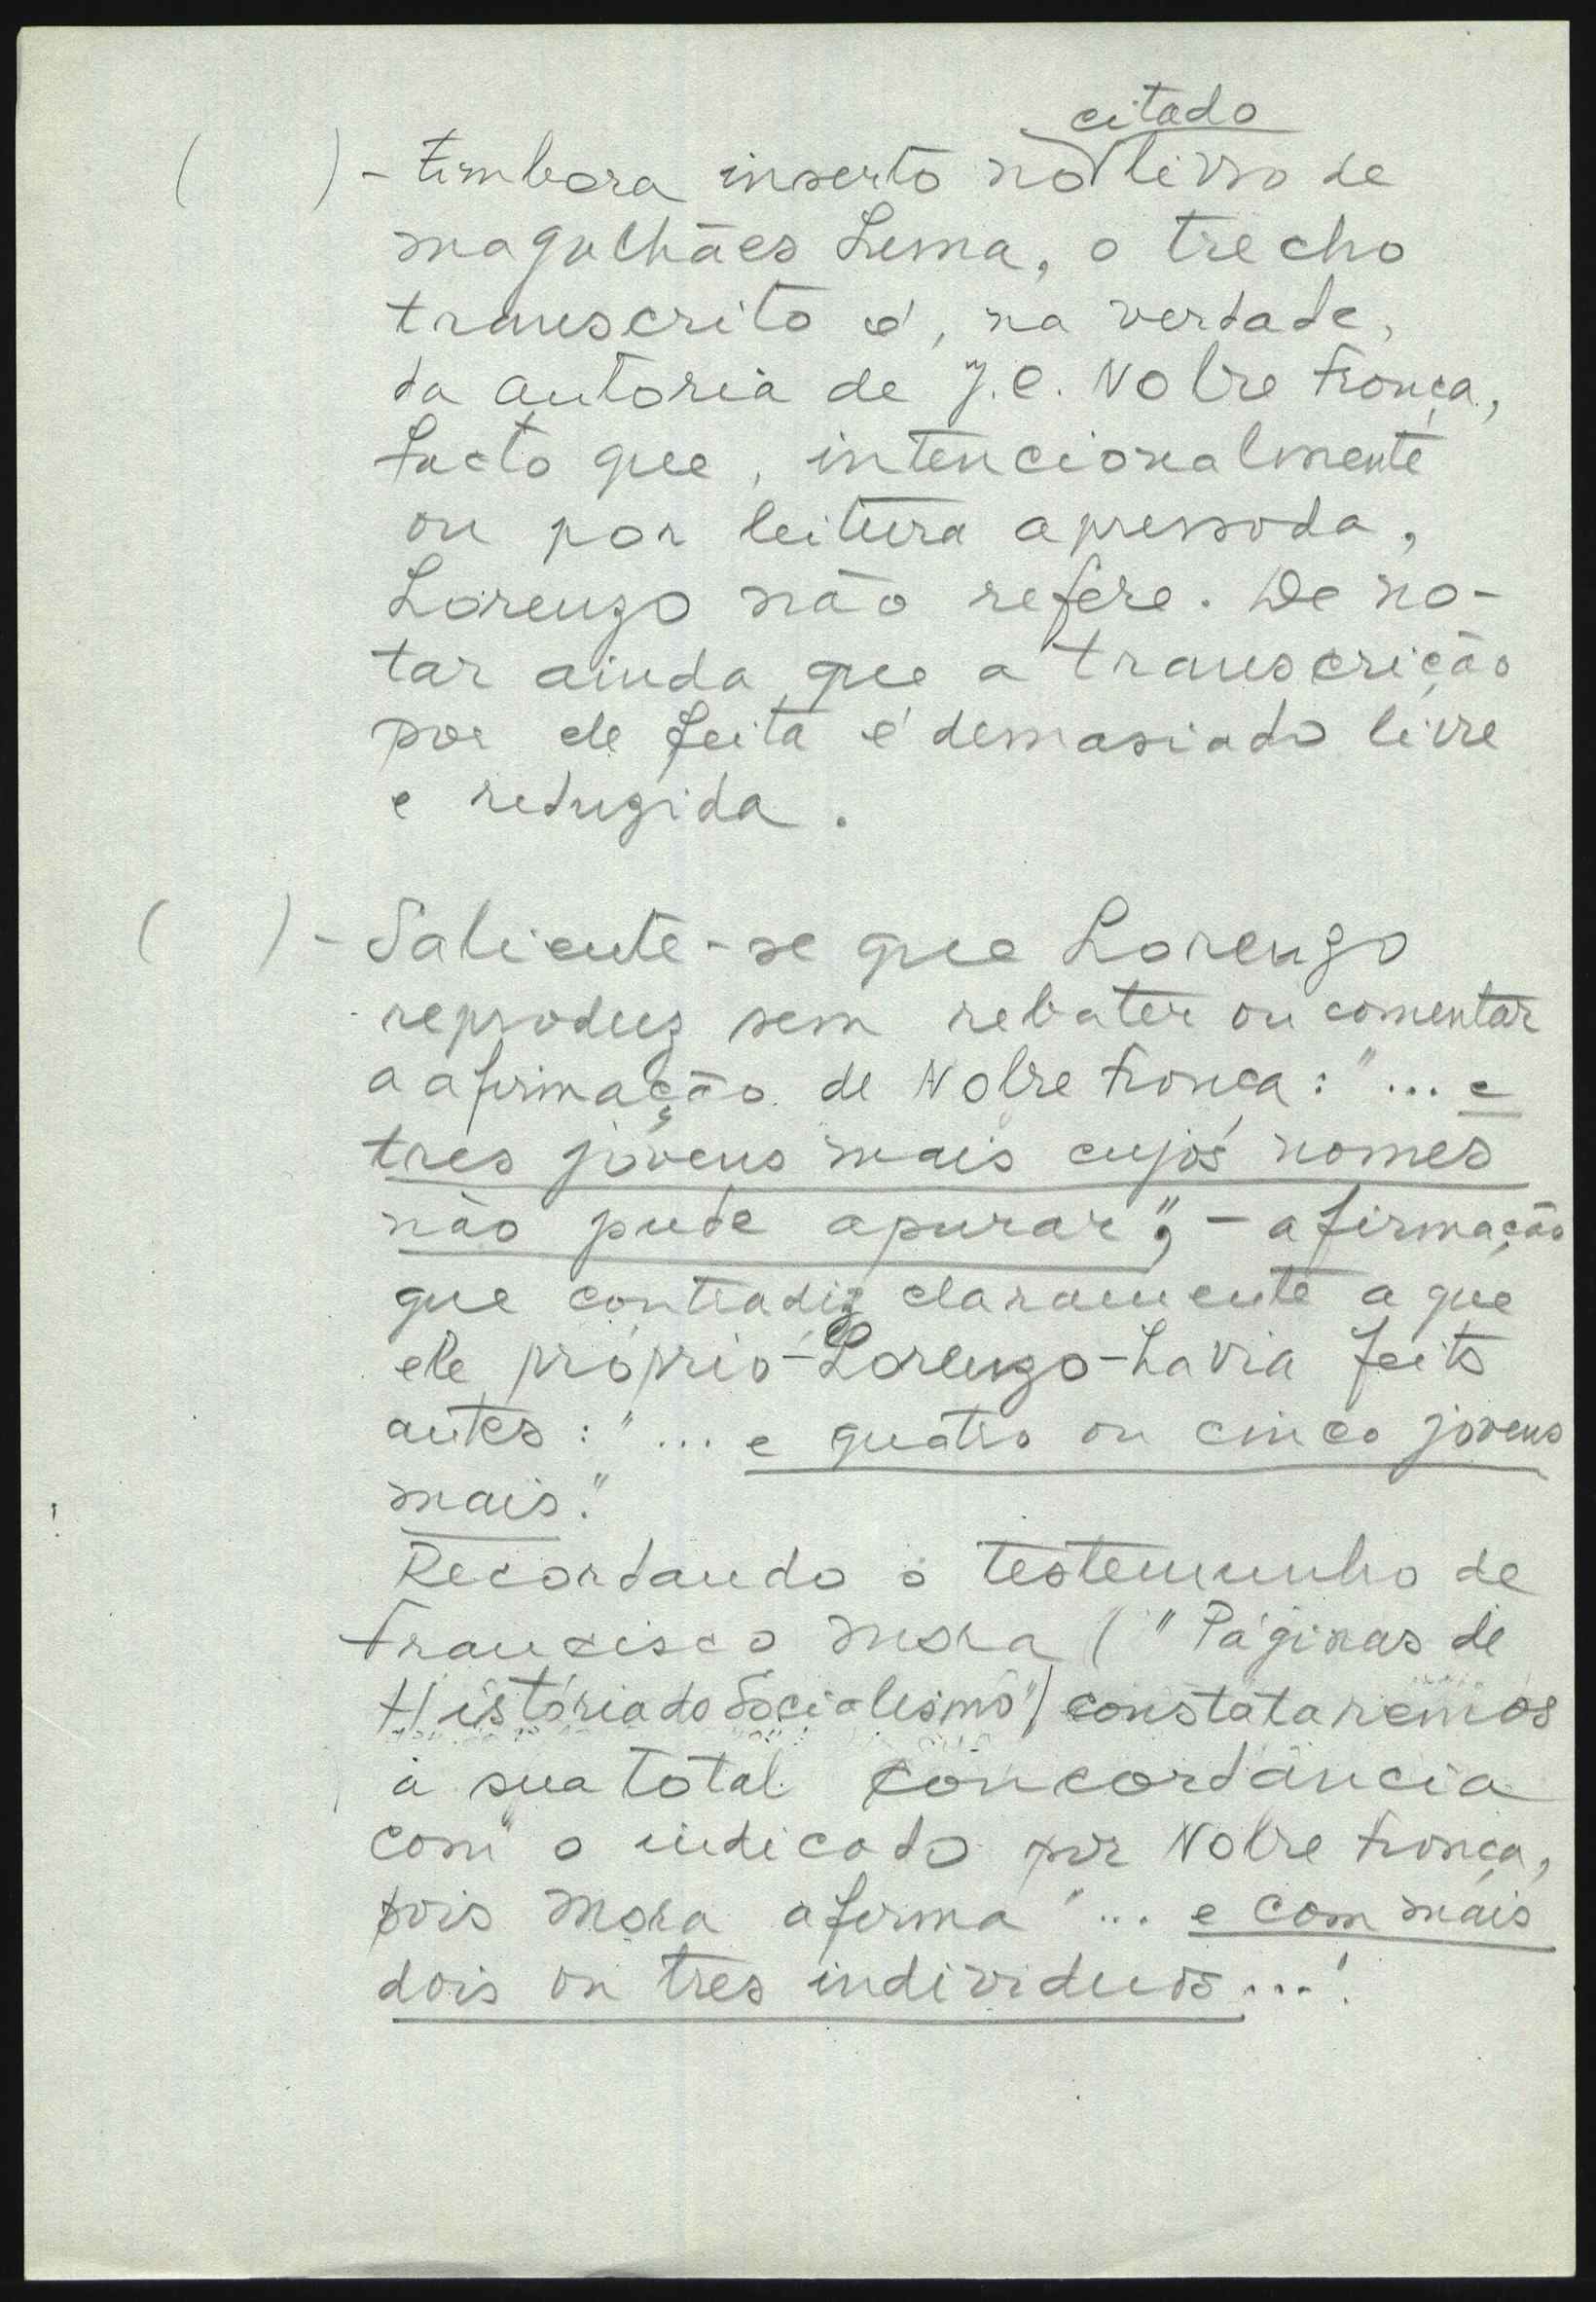 citado
( ) - Embora inserto no livro de
Magalhães Lima, o trecho
transcrito é, na verdade,
da autoria de J. C. Nobre França,
facto que, intencionalmente
ou por leitura apressada,
Lorenzo não refere. De no-
tar ainda que a transcrição
por ele feita é demasiado livre
e reduzida.
( ) - Saliente-se que Lorenzo
reproduz sem rebater ou comentar
a afirmação de Nobre França: "... e
tres jóvens mais cujos nomes
não pude apurar", - afirmação
que contradiz claramente a que
ele próprio - Lorenzo - havia feito
antes: "... e quatro ou cinco jovens
mais."
Recordando o testemunho de
Francisco Mora ("Páginas de
História do Socialismo") constataremos
a sua total concordância
com o indicado por Nobre França,
pois Mora afirma "... e com mais
dois ou tres individuos...".